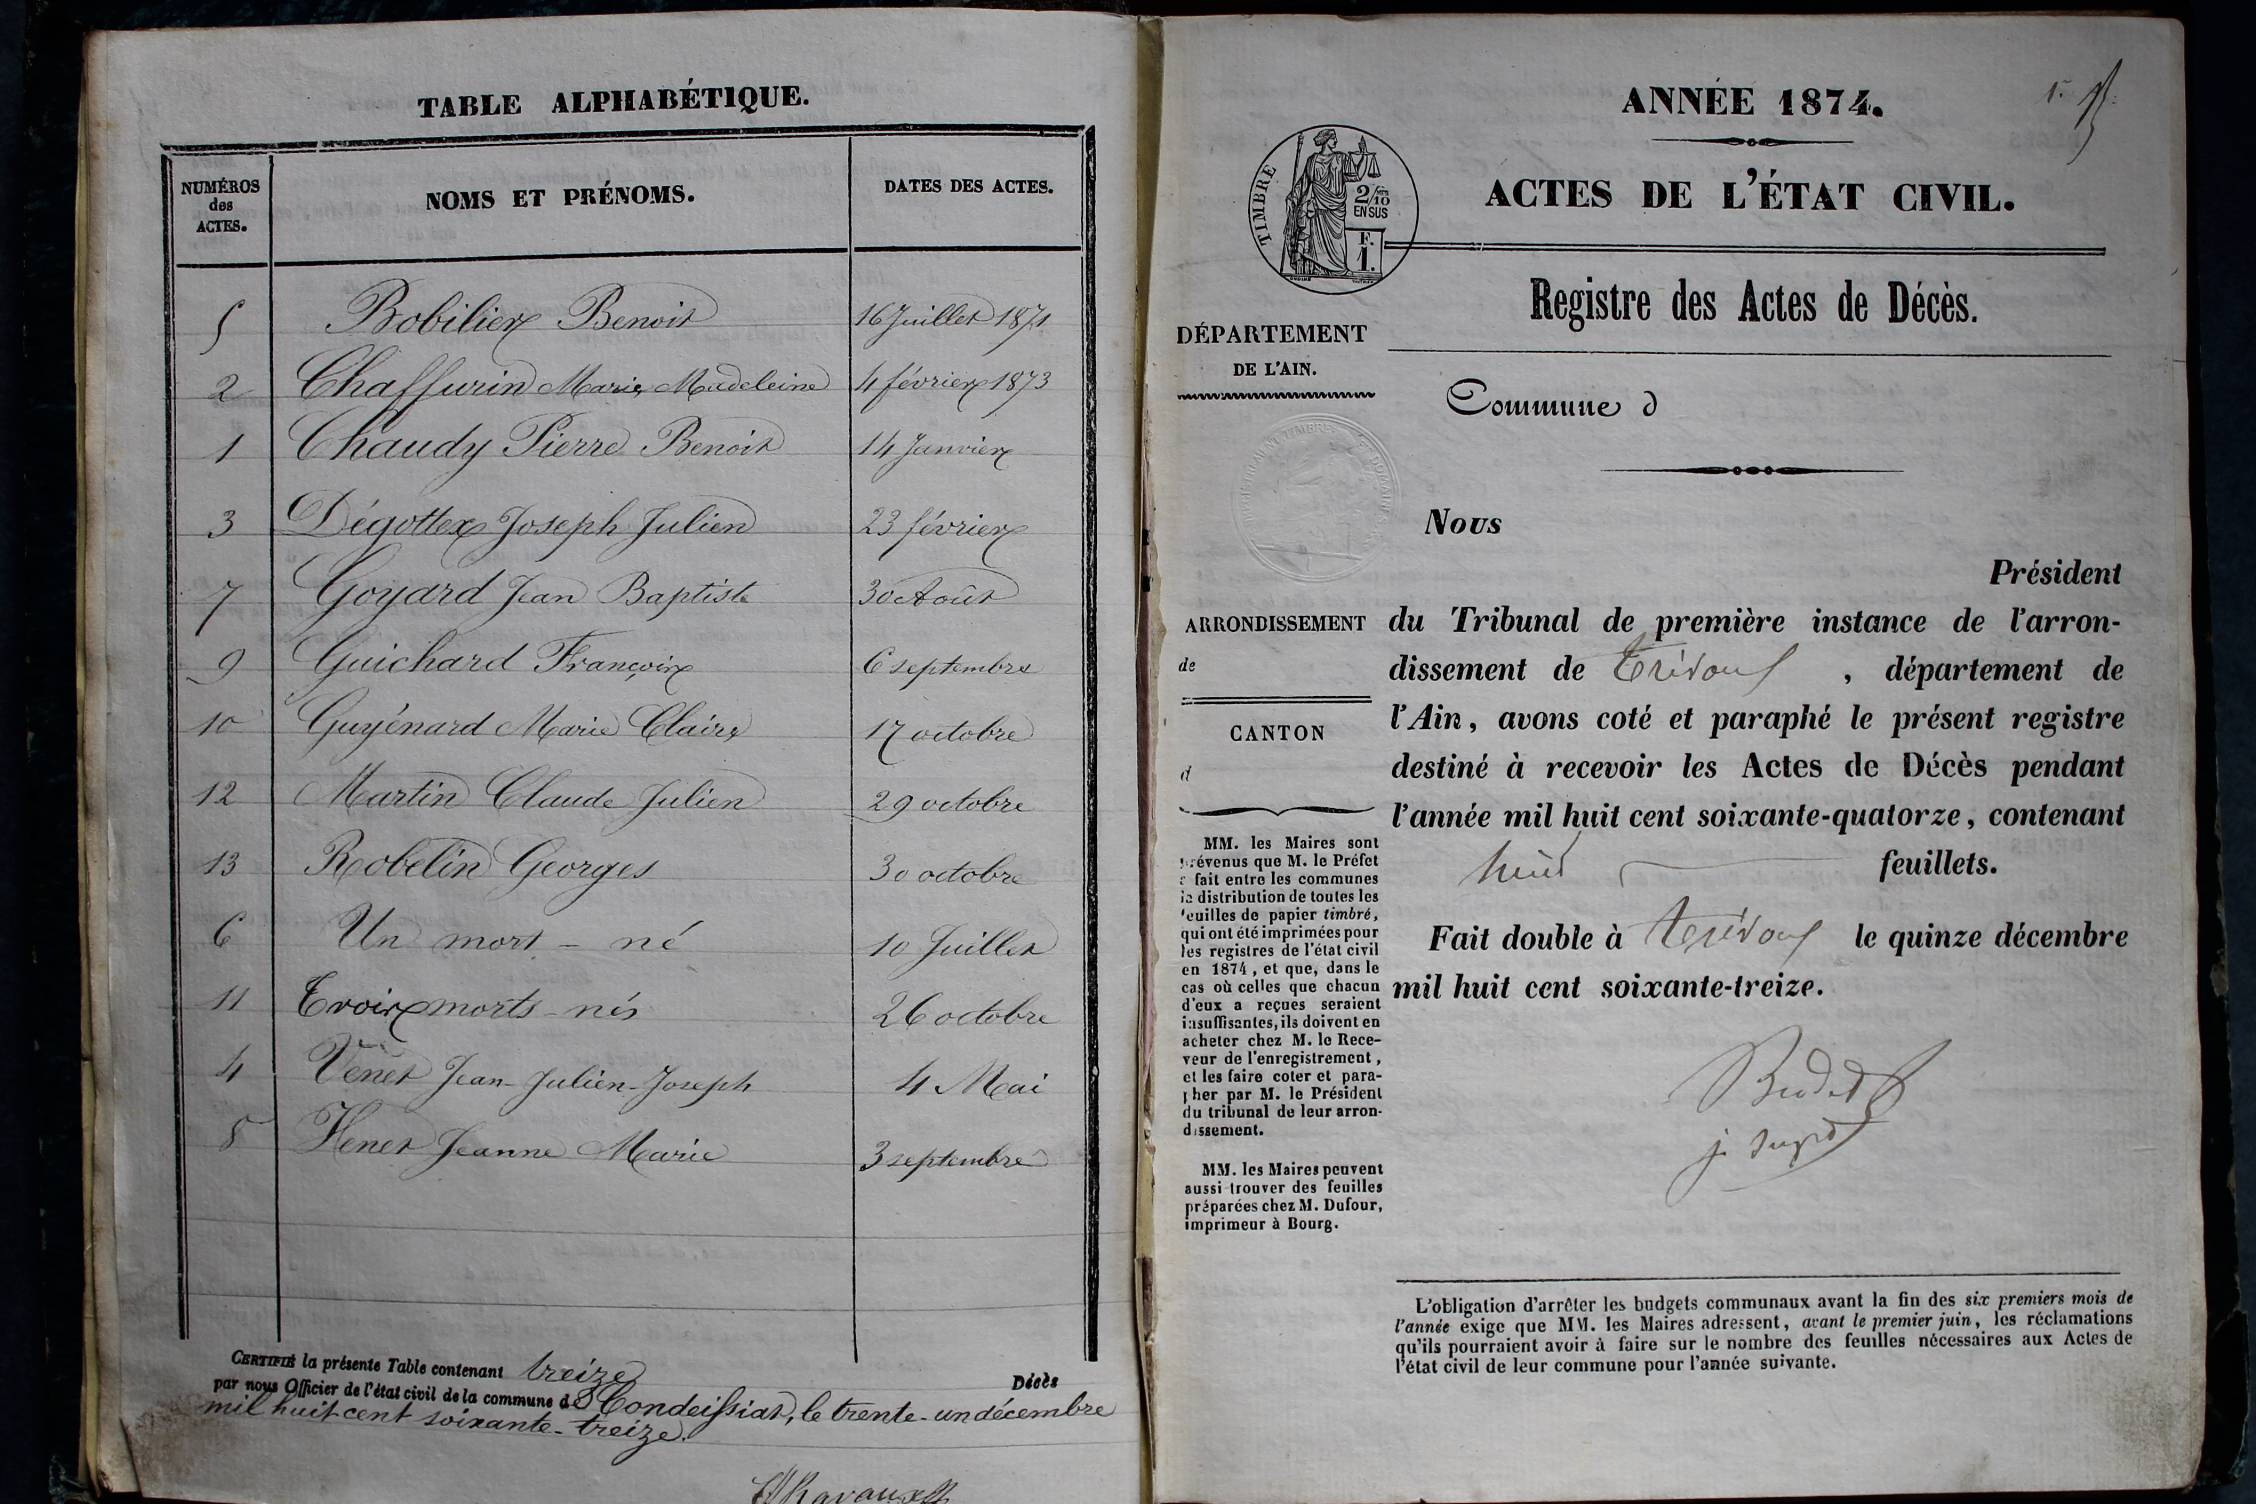 TABLE ALPHABÉTIQUE.
NUMÉROS des ACTES. NOMS ET PRÉNOMS. DATES DES ACTES.
5 Bobilier Benoit 16 Juillet 1871
2 Chaffurin Marie Madeleine 4 février 1873
1 Chaudy Pierre Benoit 14 Janvier
3 Dégottex Joseph Julien 23 février
7 Goyard Jean Baptiste 30 Août
9 Guichard François 6 septembre
10 Guyénard Marie Claire 17 octobre
12 Martin Claude Julien 29 octobre
13 Robelin Georges 30 octobre
6 Un mort-né 10 Juillet
11 Trois morts-nés 26 octobre
4 Venet Jean-Julien-Joseph 4 Mai
8 Venet Jeanne Marie 3 septembre
CERTIFIÉ la présente Table contenant treize Décès
par nous Officier de l'état civil de la commune de Condeissiat, le trente-un décembre
mil huit cent soixante-treize.
ANNÉE 1874.
ACTES DE L'ÉTAT CIVIL.
TIMBRE
2/10
EN SUS
F.
1.
Registre des Actes de Décès.
DÉPARTEMENT
DE L'AIN.
Commune d
Nous
Président
ARRONDISSEMENT
de
CANTON
d
du Tribunal de première instance de l'arron-
dissement de Trévoux, département de
l'Ain, avons coté et paraphé le présent registre
destiné à recevoir les Actes de Décès pendant
l'année mil huit cent soixante-quatorze, contenant
huit feuillets.
Fait double à Trévoux le quinze décembre
mil huit cent soixante-treize.
MM. les Maires sont
prévenus que M. le Préfet
a fait entre les communes
la distribution de toutes les
feuilles de papier timbré,
qui ont été imprimées pour
les registres de l'état civil
en 1874, et que, dans le
cas où celles que chacun
d'eux a reçues seraient
insuffisantes, ils doivent en
acheter chez M. le Rece-
veur de l'enregistrement,
et les faire coter et para-
pher par M. le Président
du tribunal de leur arron-
dissement.
MM. les Maires peuvent
aussi trouver des feuilles
préparées chez M. Dufour,
imprimeur à Bourg.
L'obligation d'arrêter les budgets communaux avant la fin des six premiers mois de
l'année exige que MM. les Maires adressent, avant le premier juin, les réclamations
qu'ils pourraient avoir à faire sur le nombre des feuilles nécessaires aux Actes de
l'état civil de leur commune pour l'année suivante.